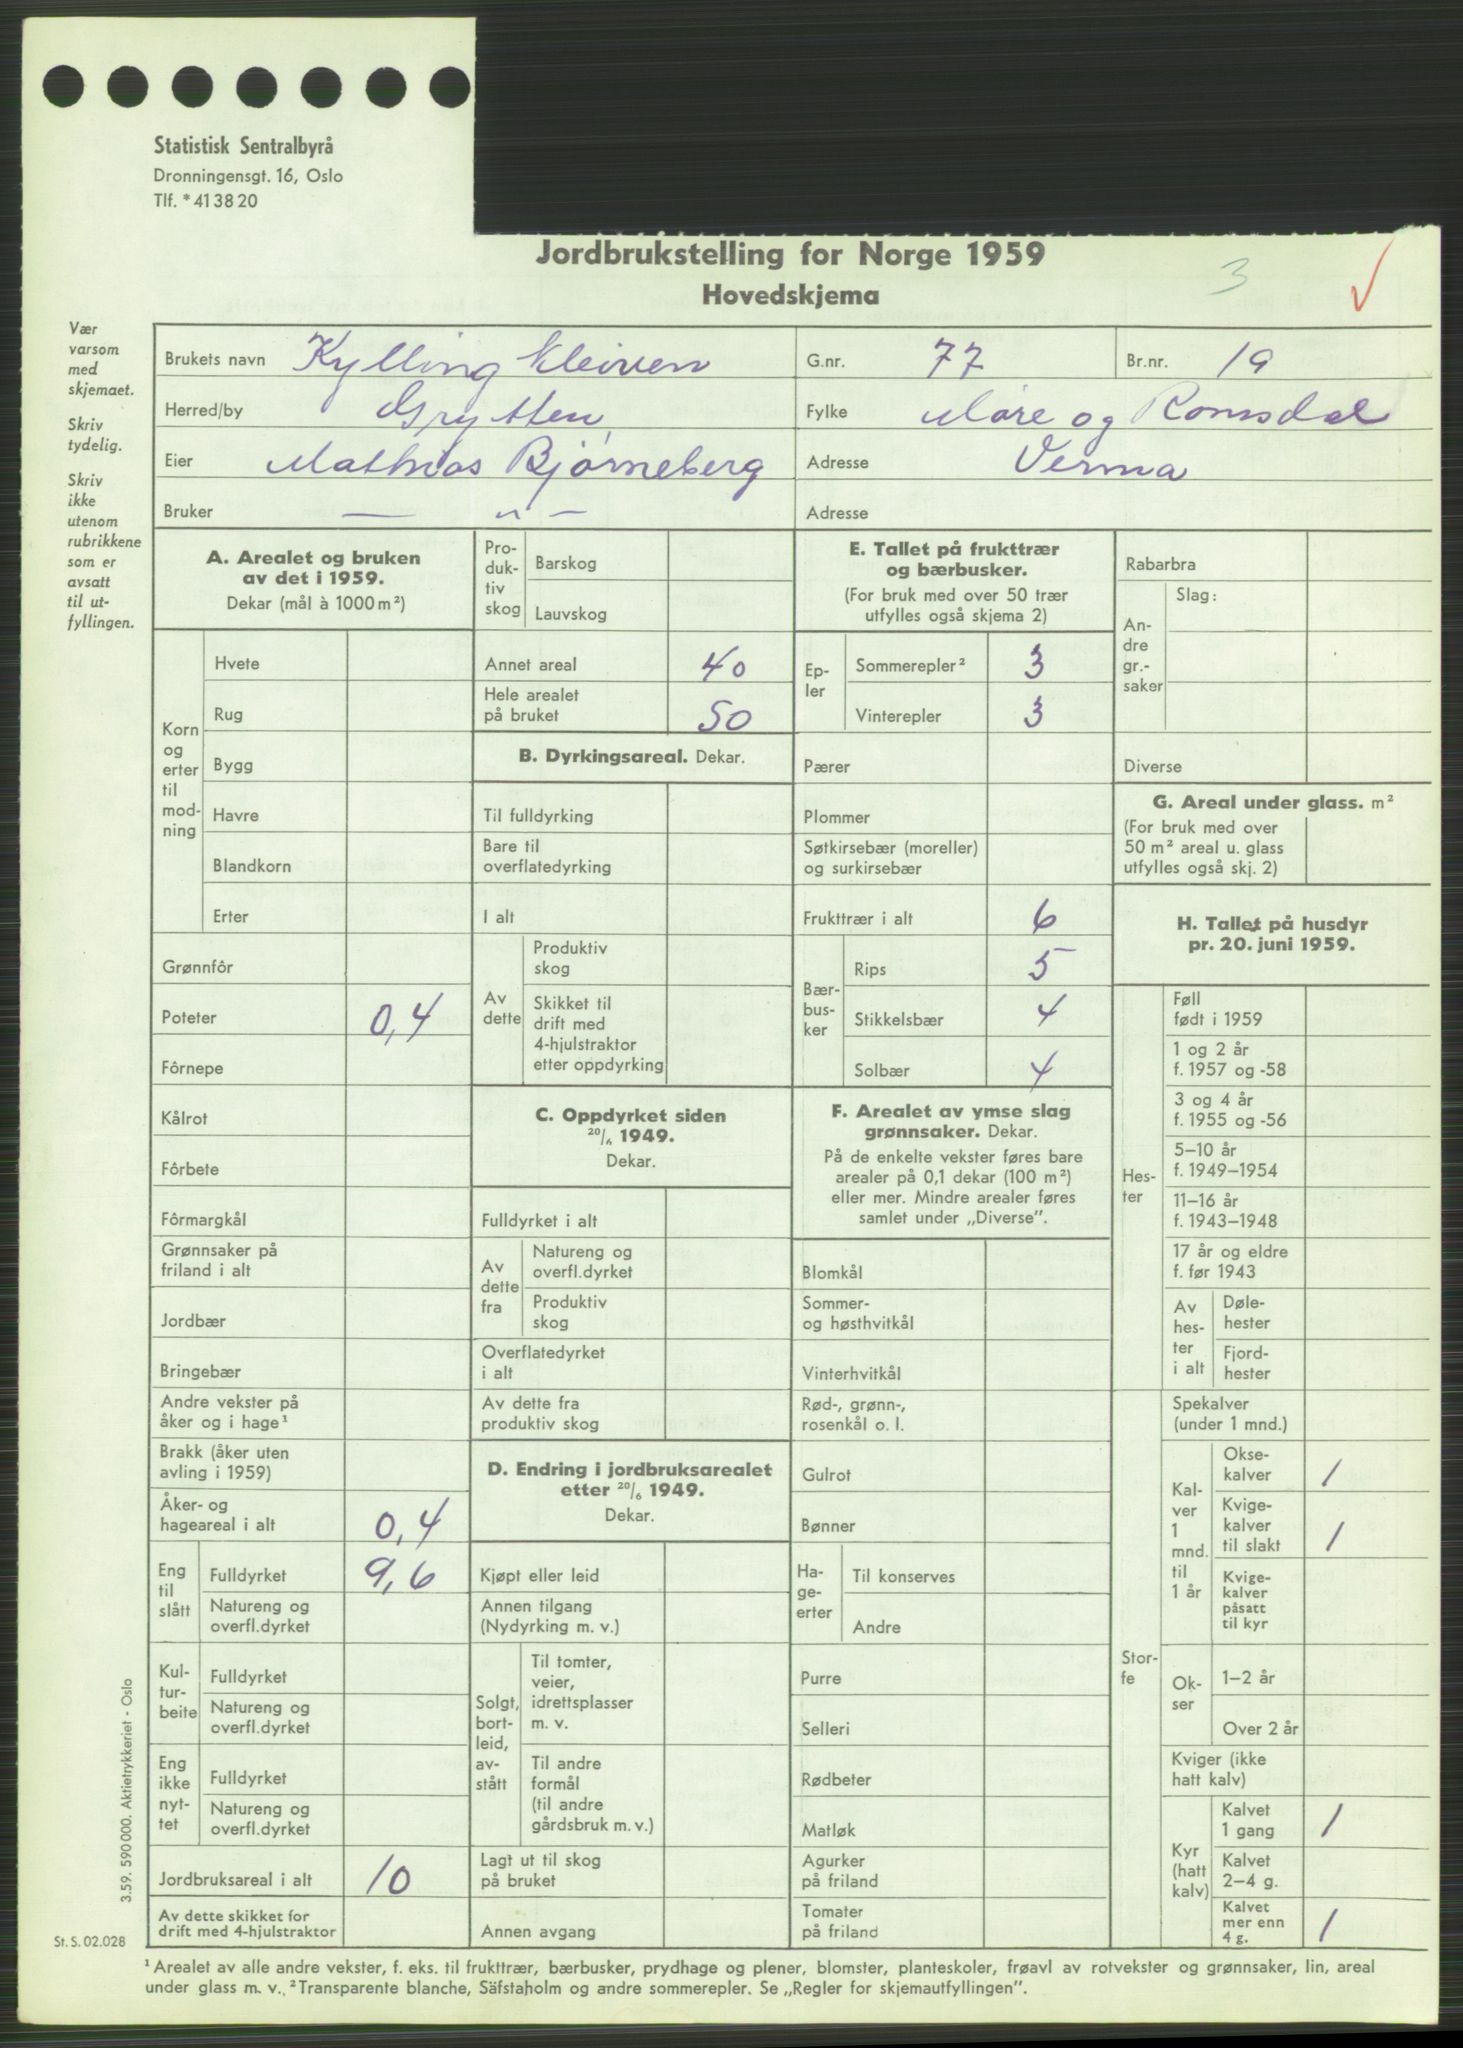 Statistisk Sentralbyrå
Dronningensgt. 16, Oslo
Tlf. * 41 38 20
Jordbrukstelling for Norge 1959
Hovedskjema
3
Vær
varsom
med
skjemaet.
Skriv
tydelig.
Skriv
ikke
utenom
rubrikkene
som er
avsatt
til ut-
fyllingen.
Brukets navn Kylling kleiven G.nr. 77 Br.nr. 19
Herred/by Grytten Fylke Møre og Romsdal
Eier Mathias Bjørneberg Adresse Verma
Bruker — " — Adresse
A. Arealet og bruken
av det i 1959.
Dekar (mål à 1000 m²)
Korn
og
erter
til
mod-
ning
Hvete
Rug
Bygg
Havre
Blandkorn
Erter
Grønnfôr
Poteter 0,4
Fôrnepe
Kålrot
Fôrbete
Fôrmargkål
Grønnsaker på
friland i alt
Jordbær
Bringebær
Andre vekster på
åker og i hage¹
Brakk (åker uten
avling i 1959)
Åker- og
hageareal i alt 0,4
Eng
til
slått
Fulldyrket 9,6
Natureng og
overfl.dyrket
Kul-
tur-
beite
Fulldyrket
Natureng og
overfl.dyrket
Eng
ikke
nyt-
tet
Fulldyrket
Natureng og
overfl.dyrket
Jordbruksareal i alt 10
Av dette skikket for
drift med 4-hjulstraktor
Pro-
duk-
tiv
skog
Barskog
Lauvskog
Annet areal 40
Hele arealet
på bruket 50
B. Dyrkingsareal. Dekar.
Til fulldyrking
Bare til
overflatedyrking
I alt
Av
dette
Produktiv
skog
Skikket til
drift med
4-hjulstraktor
etter oppdyrking
C. Oppdyrket siden
20/6 1949.
Dekar.
Fulldyrket i alt
Av
dette
fra
Natureng og
overfl.dyrket
Produktiv
skog
Overflatedyrket
i alt
Av dette fra
produktiv skog
D. Endring i jordbruksarealet
etter 20/6 1949.
Dekar.
Kjøpt eller leid
Annen tilgang
(Nydyrking m. v.)
Solgt,
bort-
leid,
av-
stått
Til tomter,
veier,
idrettsplasser
m. v.
Til andre
formål
(til andre
gårdsbruk m. v.)
Lagt ut til skog
på bruket
Annen avgang
E. Tallet på frukttrær
og bærbusker.
(For bruk med over 50 trær
utfylles også skjema 2)
Ep-
ler
Sommerepler² 3
Vinterepler 3
Pærer
Plommer
Søtkirsebær (moreller)
og surkirsebær
Frukttrær i alt 6
Bær-
bus-
ker
Rips 5
Stikkelsbær 4
Solbær 4
F. Arealet av ymse slag
grønnsaker. Dekar.
På de enkelte vekster føres bare
arealer på 0,1 dekar (100 m²)
eller mer. Mindre arealer føres
samlet under „Diverse”.
Blomkål
Sommer-
og høsthvitkål
Vinterhvitkål
Rød-, grønn-,
rosenkål o. l.
Gulrot
Bønner
Ha-
ge-
erter
Til konserves
Andre
Purre
Selleri
Rødbeter
Matløk
Agurker
på friland
Tomater
på friland
Rabarbra
An-
dre
gr.-
saker
Slag:
Diverse
G. Areal under glass. m²
(For bruk med over
50 m² areal u. glass
utfylles også skj. 2)
H. Tallet på husdyr
pr. 20. juni 1959.
Hes-
ter
Føll
født i 1959
1 og 2 år
f. 1957 og -58
3 og 4 år
f. 1955 og -56
5–10 år
f. 1949–1954
11–16 år
f. 1943–1948
17 år og eldre
f. før 1943
Av
hes-
ter
i alt
Døle-
hester
Fjord-
hester
Stor-
fe
Spekalver
(under 1 mnd.)
Kal-
ver
1
mnd.
til
1 år
Okse-
kalver 1
Kvige-
kalver
til slakt 1
Kvige-
kalver
påsatt
til kyr
Ok-
ser
1–2 år
Over 2 år
Kviger (ikke
hatt kalv)
Kyr
(hatt
kalv)
Kalvet
1 gang 1
Kalvet
2–4 g.
Kalvet
mer enn
4 g. 1
3.59. 590 000. Aktietrykkeriet - Oslo
St. S. 02.028
¹ Arealet av alle andre vekster, f. eks. til frukttrær, bærbusker, prydhage og plener, blomster, planteskoler, frøavl av rotvekster og grønnsaker, lin, areal
under glass m. v. ² Transparente blanche, Säfstaholm og andre sommerepler. Se „Regler for skjemautfyllingen”.